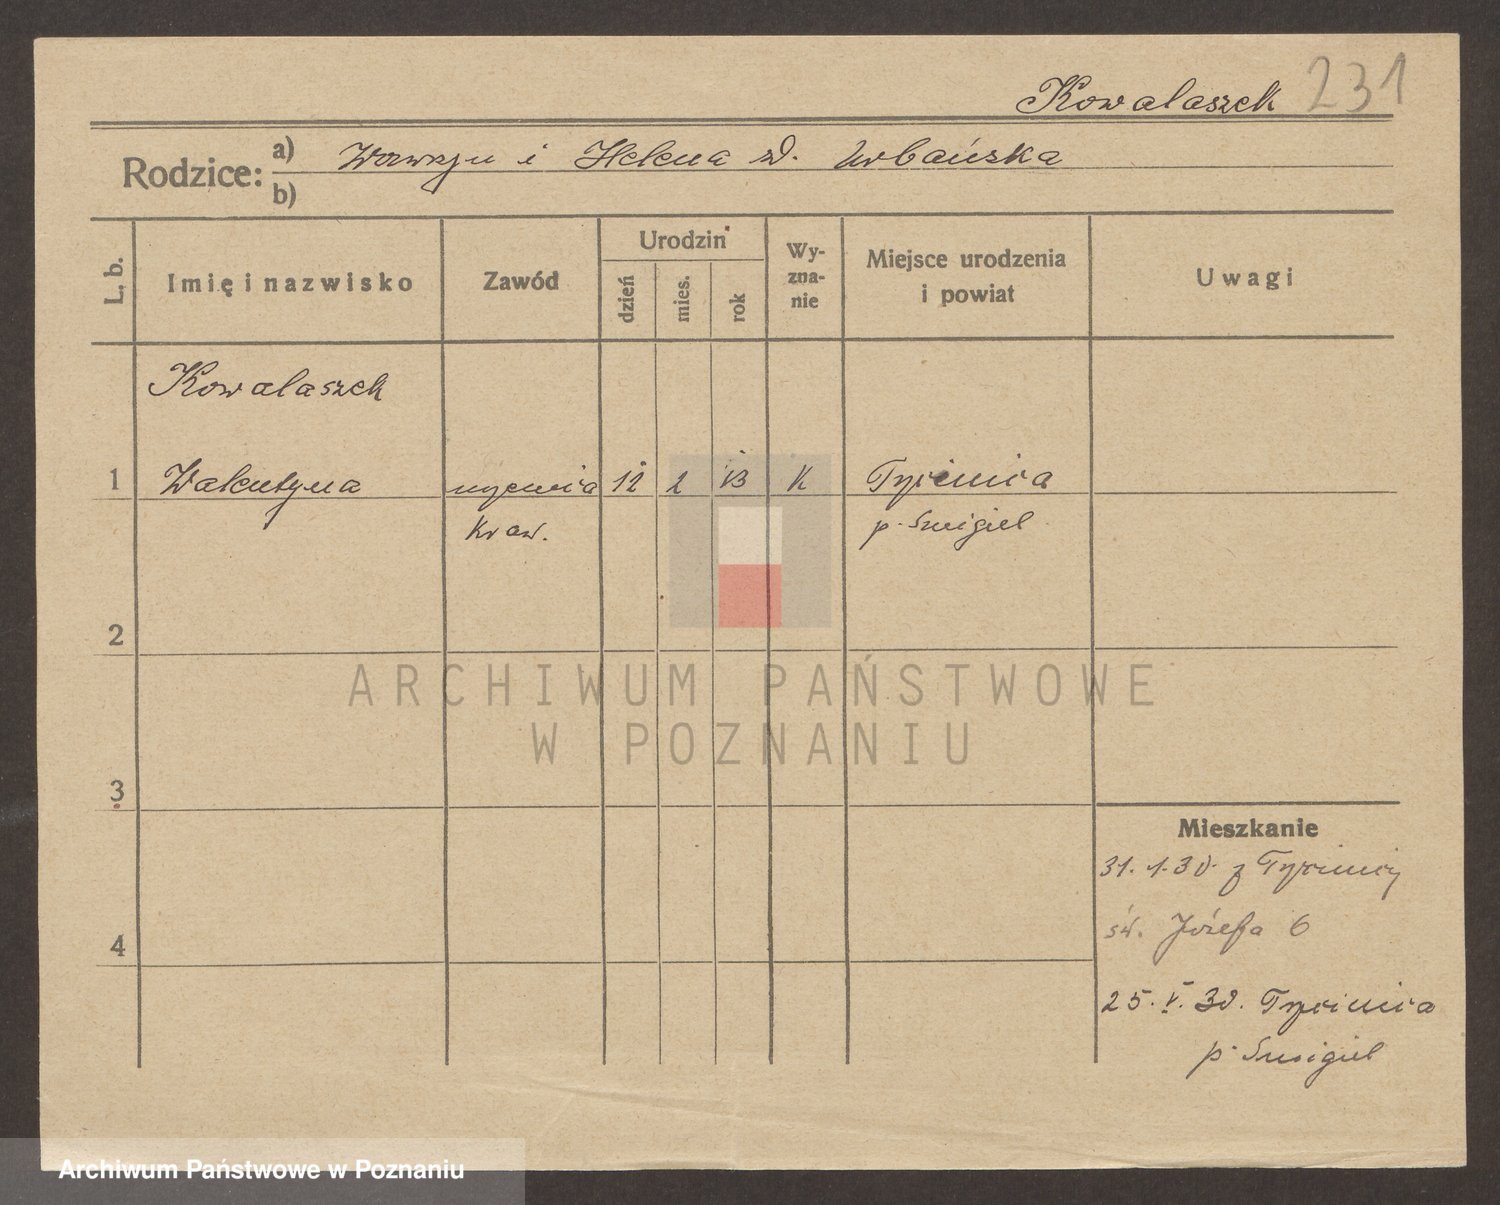 Kowalaszek 231
Rodzice: a) Wawrzyn i Helena zd. Urbańska
b)
L. b.
Imię i nazwisko
Zawód
Urodzin
dzień
mies.
rok
Wy-
zna-
nie
Miejsce urodzenia
i powiat
Uwagi
Kowalaszek
1 Walentyna uczenica 12 2 13 K
kraw. p. Smigiel
2
3
4
Mieszkanie
31. 1. 30. z
św. Józefa 6
25. V. 30.
p. Smigiel
ARCHIWUM PAŃSTWOWE
W POZNANIU
Archiwum Państwowe w Poznaniu